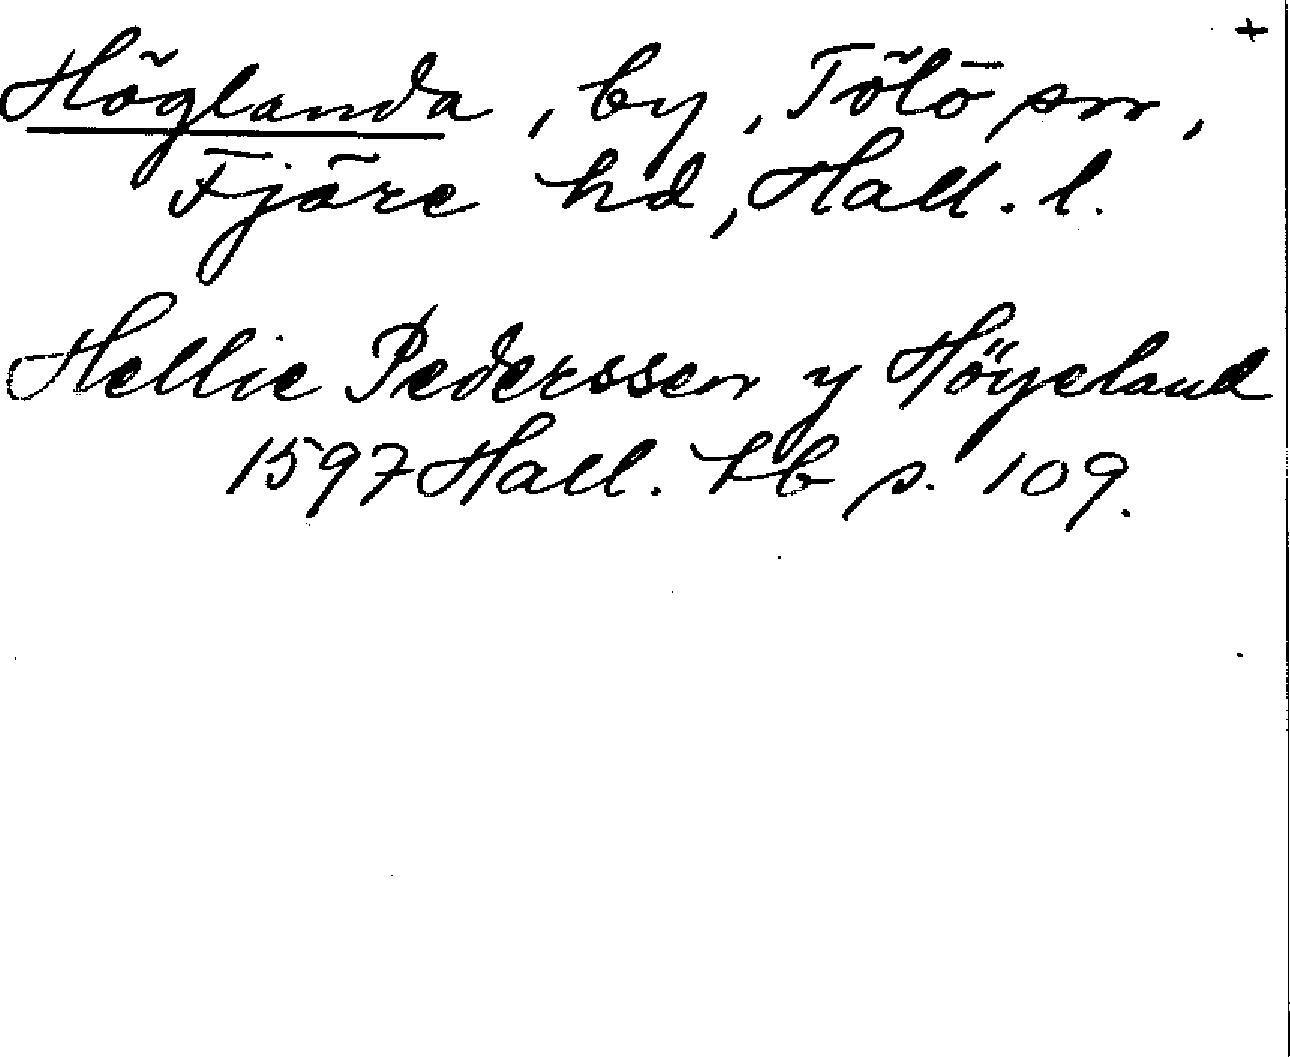 +
Höglanda, by, Tölö sn,
Fjäre hd, Hall. l.
Hellie Pederssen y Höyeland
1597 Hall. hb s. 109.